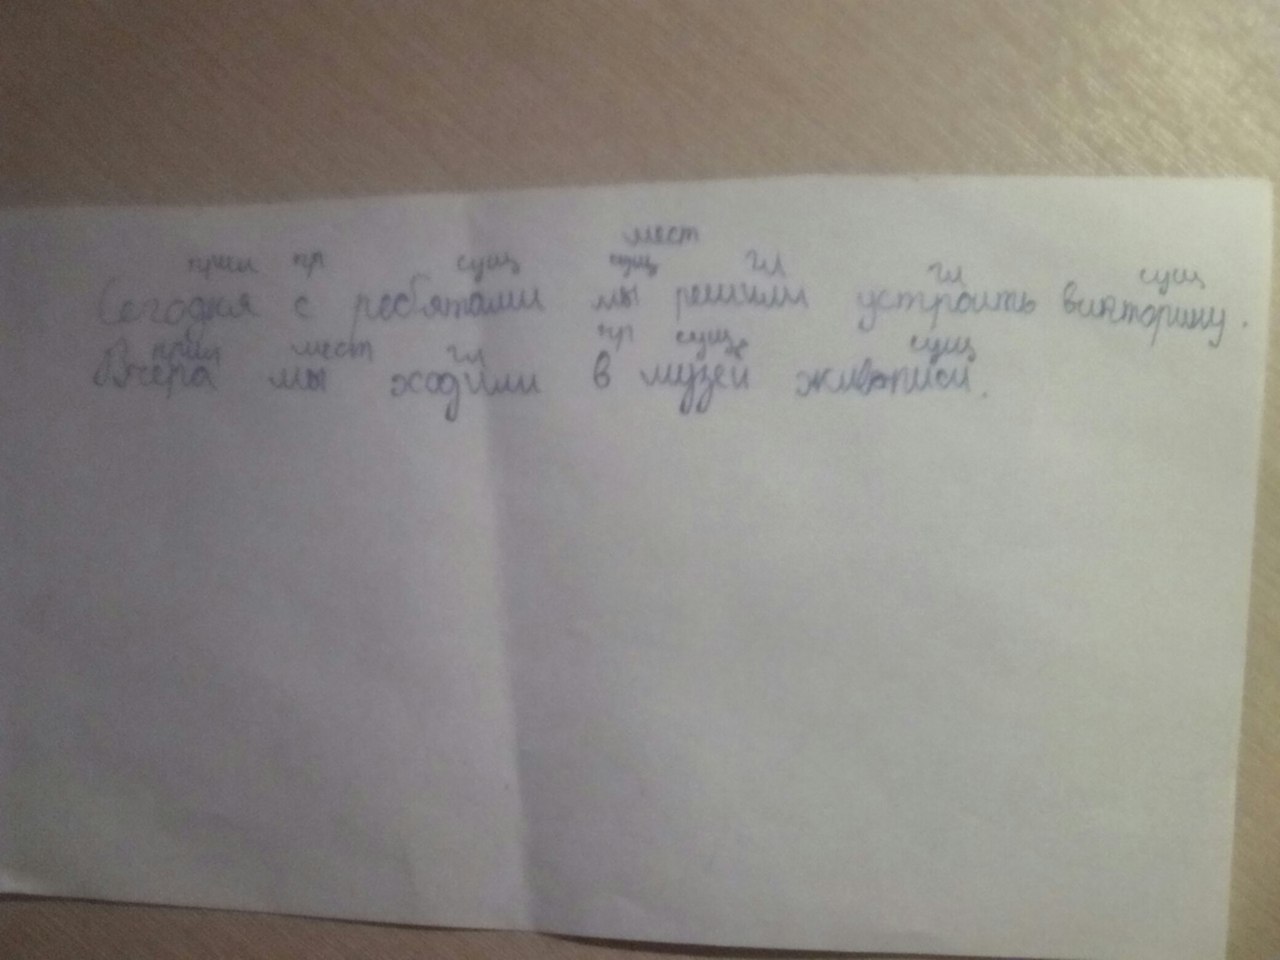 мест
прил пр сущ сущ гл гл сущ
Сегодня с ребятами мы решили устроить викторину.
прил мест гл пр сущ сущ
Вчера мы ходили в музей живописи.